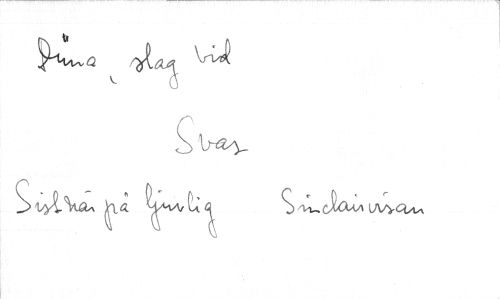 Düna, slag vid
Svar
Sist när på ljuvlig Sinclairvisan